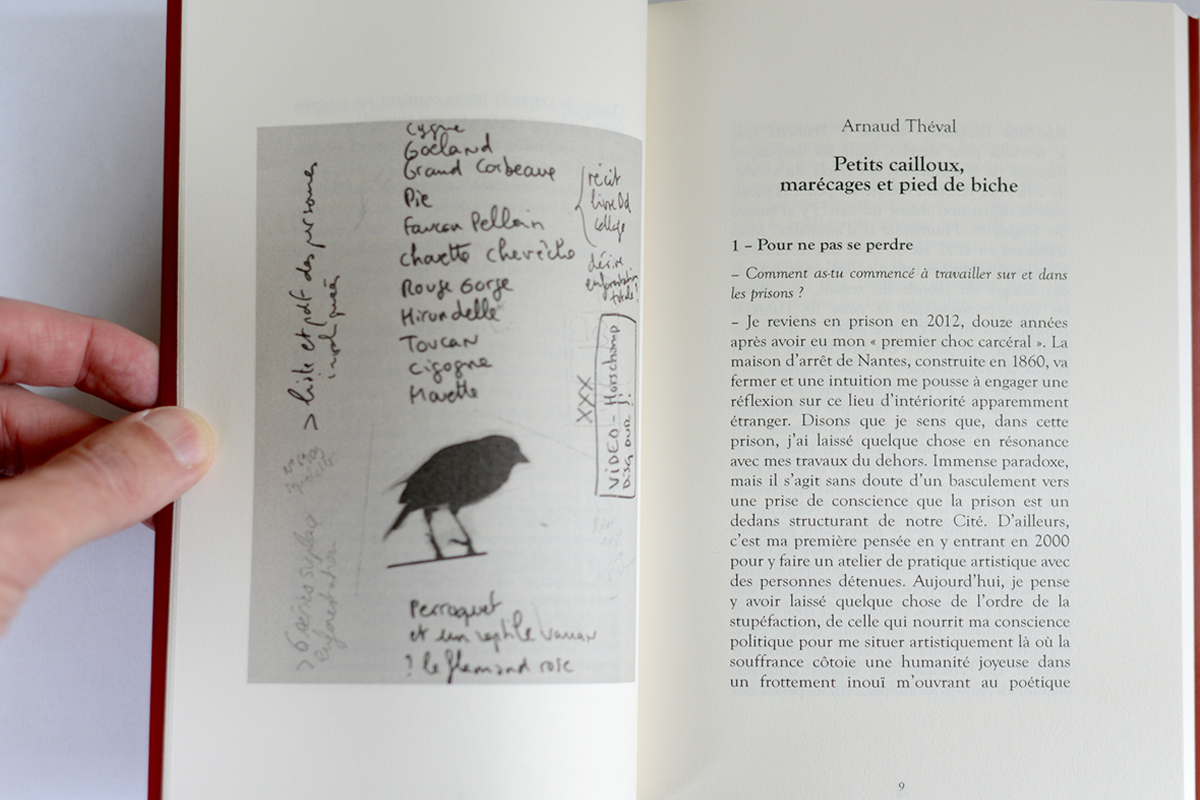 cygne
Goéland
Grand Corbeaux
Pie
Faucon Pellerin
chouette chevêche
Rouge Gorge
Hirundelle
Toucan
cigogne
Mouette
Perroquet
et un reptile varan
? le flamand rose
> liste et pdf des personnes
impliquées
récit
livre Dd
collage
dérive
XXX
VIDEO - Horschamp
> 6 séries
Arnaud Théval
Petits cailloux,
marécages et pied de biche
1 – Pour ne pas se perdre
– Comment as-tu commencé à travailler sur et dans
les prisons ?
– Je reviens en prison en 2012, douze années
après avoir eu mon « premier choc carcéral ». La
maison d’arrêt de Nantes, construite en 1860, va
fermer et une intuition me pousse à engager une
réflexion sur ce lieu d’intériorité apparemment
étranger. Disons que je sens que, dans cette
prison, j’ai laissé quelque chose en résonance
avec mes travaux du dehors. Immense paradoxe,
mais il s’agit sans doute d’un basculement vers
une prise de conscience que la prison est un
dedans structurant de notre Cité. D’ailleurs,
c’est ma première pensée en y entrant en 2000
pour y faire un atelier de pratique artistique avec
des personnes détenues. Aujourd’hui, je pense
y avoir laissé quelque chose de l’ordre de la
stupéfaction, de celle qui nourrit ma conscience
politique pour me situer artistiquement là où la
souffrance côtoie une humanité joyeuse dans
un frottement inouï m’ouvrant au poétique
9